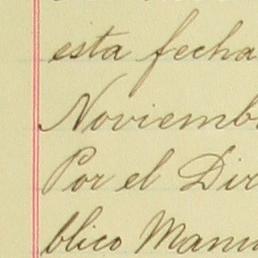 esta fecha
Noviemb
Por el Dir
blico Manu